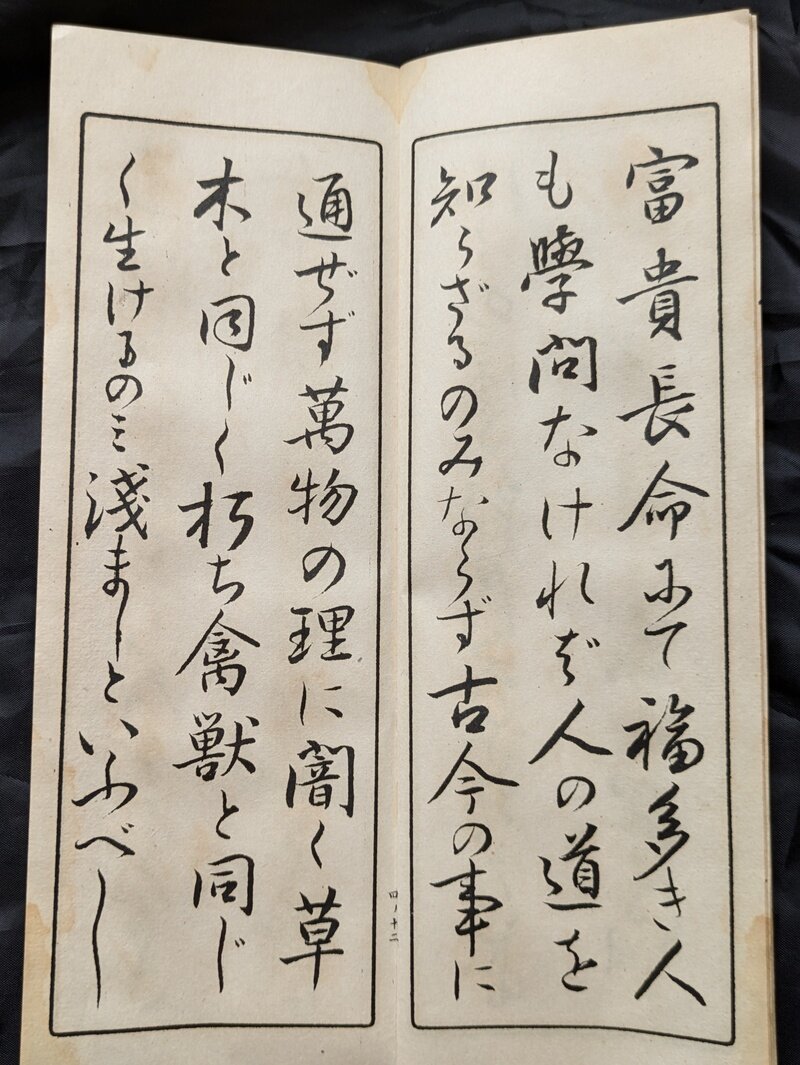 富貴長命にて福多き人
も學問なけれバ人の道を
知らざるのみならず古今の事に
通ぜず萬物の理に闇く草
木と同じく朽ち禽獣と同じ
く生けるのミ淺ましといふべし
四ノ十二